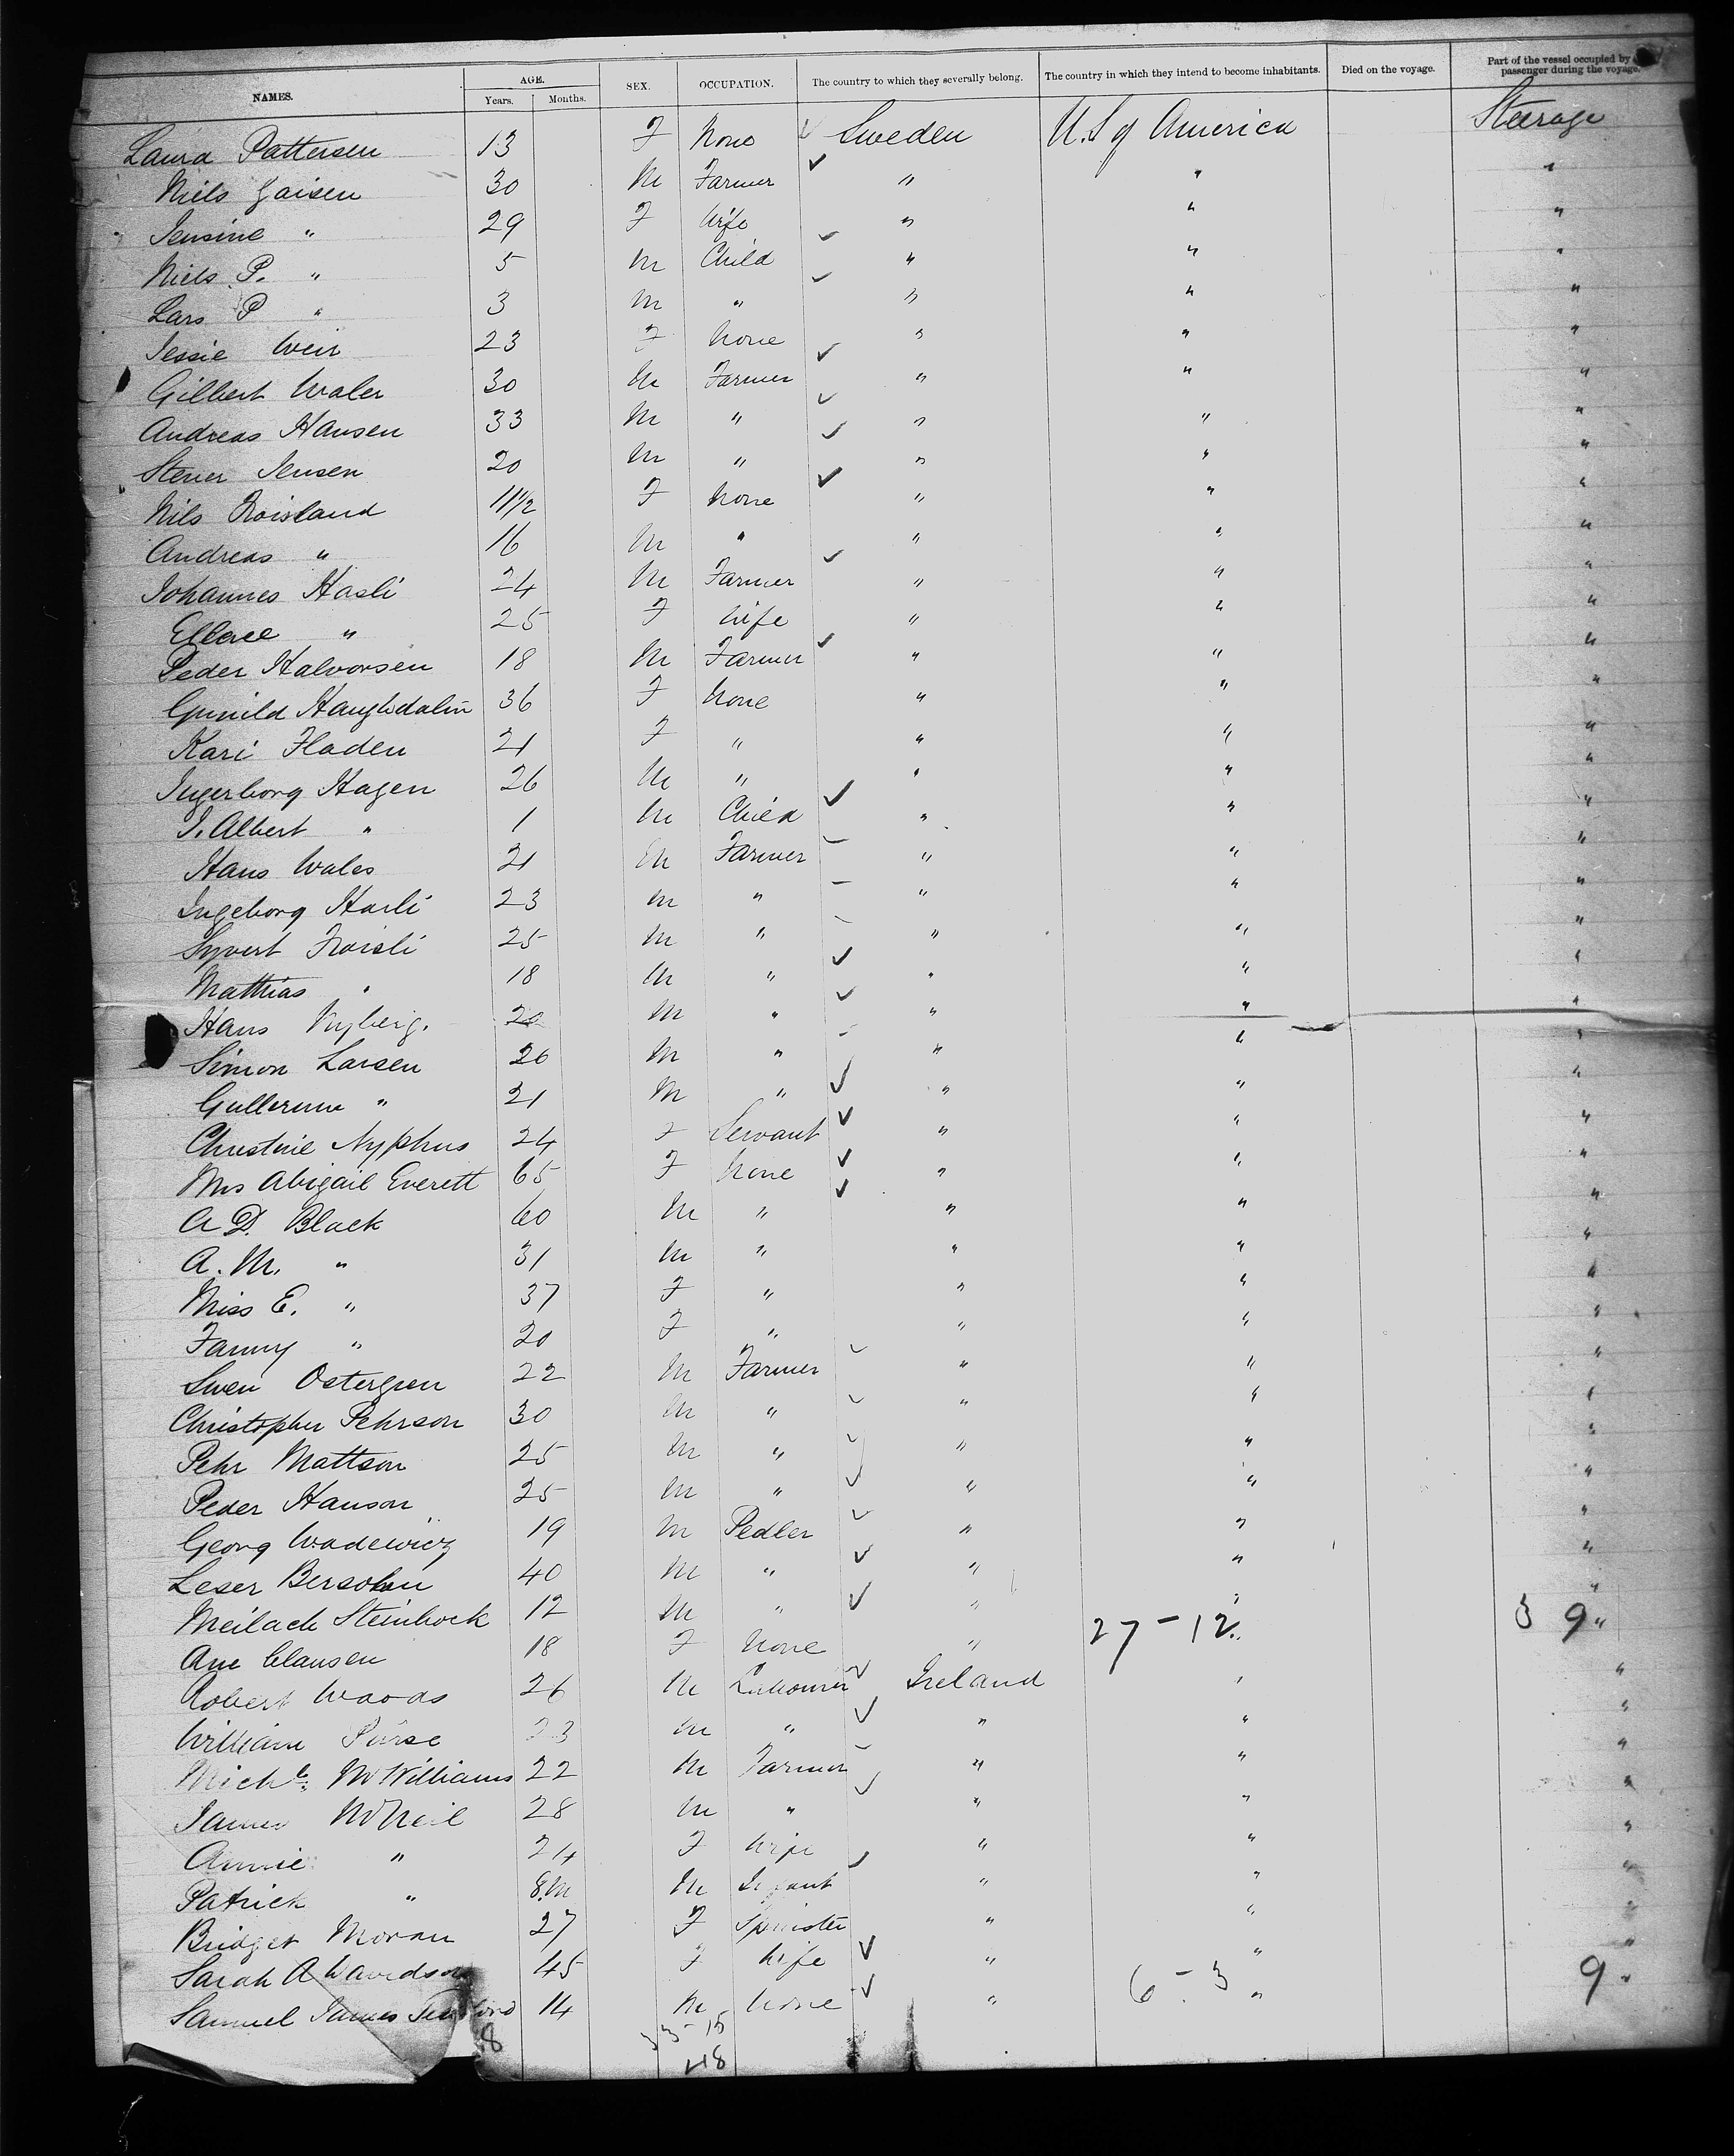 NAMES. AGE. Years. Months. SEX. OCCUPATION. The country to which they severally belong. The country in which they intend to become inhabitants. Died on the voyage. Part of the vessel occupied by passenger during the voyage.
Laura Pattersen 13 F None Sweden U.S of America Steerage
Niels Jaisen 30 M Farmer " " "
Jensine " 29 F Wife " " "
Niels P. " 5 M Child " " "
Lars P " 3 M " " " "
Jessie Weir 23 F None " " "
Gilbert Waler 30 M Farmer " " "
Andreas Hansen 33 M " " " "
Stener Jensen 20 M " " " "
Nils Roisland 11 1/2 F None " " "
Andreas " 16 M " " " "
Johannes Hasli 24 M Farmer " " "
" 25 F Wife " " "
Peder Halvorsen 18 M Farmer " " "
Gunild 36 F None " " "
Kari Fladen 21 F " " " "
Ingerborg Hagen 26 M " " " "
J. Albert " 1 M Child " " "
Hans Wales 21 M Farmer " " "
Ingeborg Harli 23 M " " " "
Syvert Froisli 25 M " " " "
Mathias " 18 M " " " "
Hans Nyberg. 20 M " " " "
Simon Larsen 26 M " " " "
" 21 M " " " "
Christine Nyphus 24 F Servant " " "
Mrs Abigail Everett 65 F None " " "
A D. Black 60 M " " " "
A. M. " 31 M " " " "
Miss E. " 37 F " " " "
Fanny " 20 F " " " "
Swen Ostergren 22 M Farmer " " "
Christopher Pehrson 30 M " " " "
Pehr Mattson 25 M " " " "
Peder Hanson 25 M " " " "
Georg Wadewicz 19 M Pedler " " "
Leser Bersohn 40 M " " " "
Meilach Steinbock 12 M " " " "
Ane Clausen 18 F None " 27-12 " 3 9 "
Robert Woods 26 M Labourer Ireland " "
William Purse 23 M " " " "
Michl. McWilliams 22 M Farmer " " "
James McNeil 28 M " " " "
Annie " 24 F Wife " " "
Patrick " 8.M M Infant " " "
Bridget Moran 27 F Spinster " " "
Sarah A Davidson 45 F Wife " " "
Samuel James 14 M None " 6-3 " 9 "
8 33-15
48